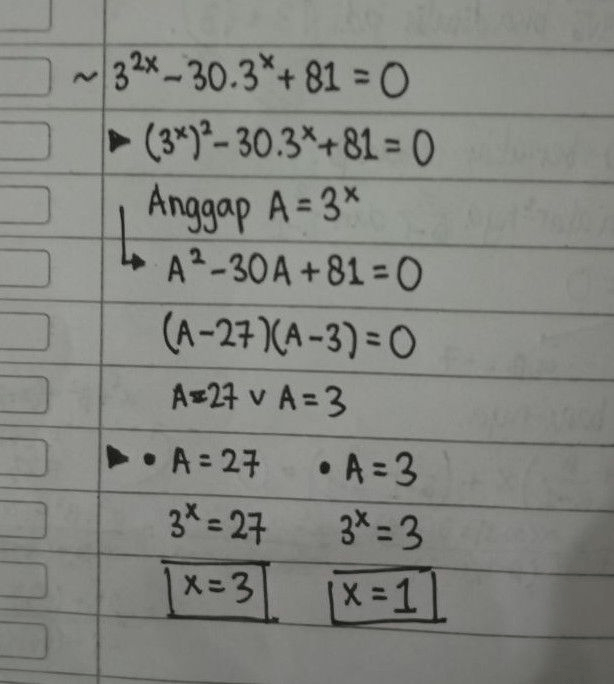 ~ 3²ˣ - 30.3ˣ + 81 = 0
► (3ˣ)² - 30.3ˣ + 81 = 0
Anggap A = 3ˣ
↳ A² - 30A + 81 = 0
(A - 27)(A - 3) = 0
A = 27 ∨ A = 3
► • A = 27 • A = 3
3ˣ = 27 3ˣ = 3
x = 3 x = 1